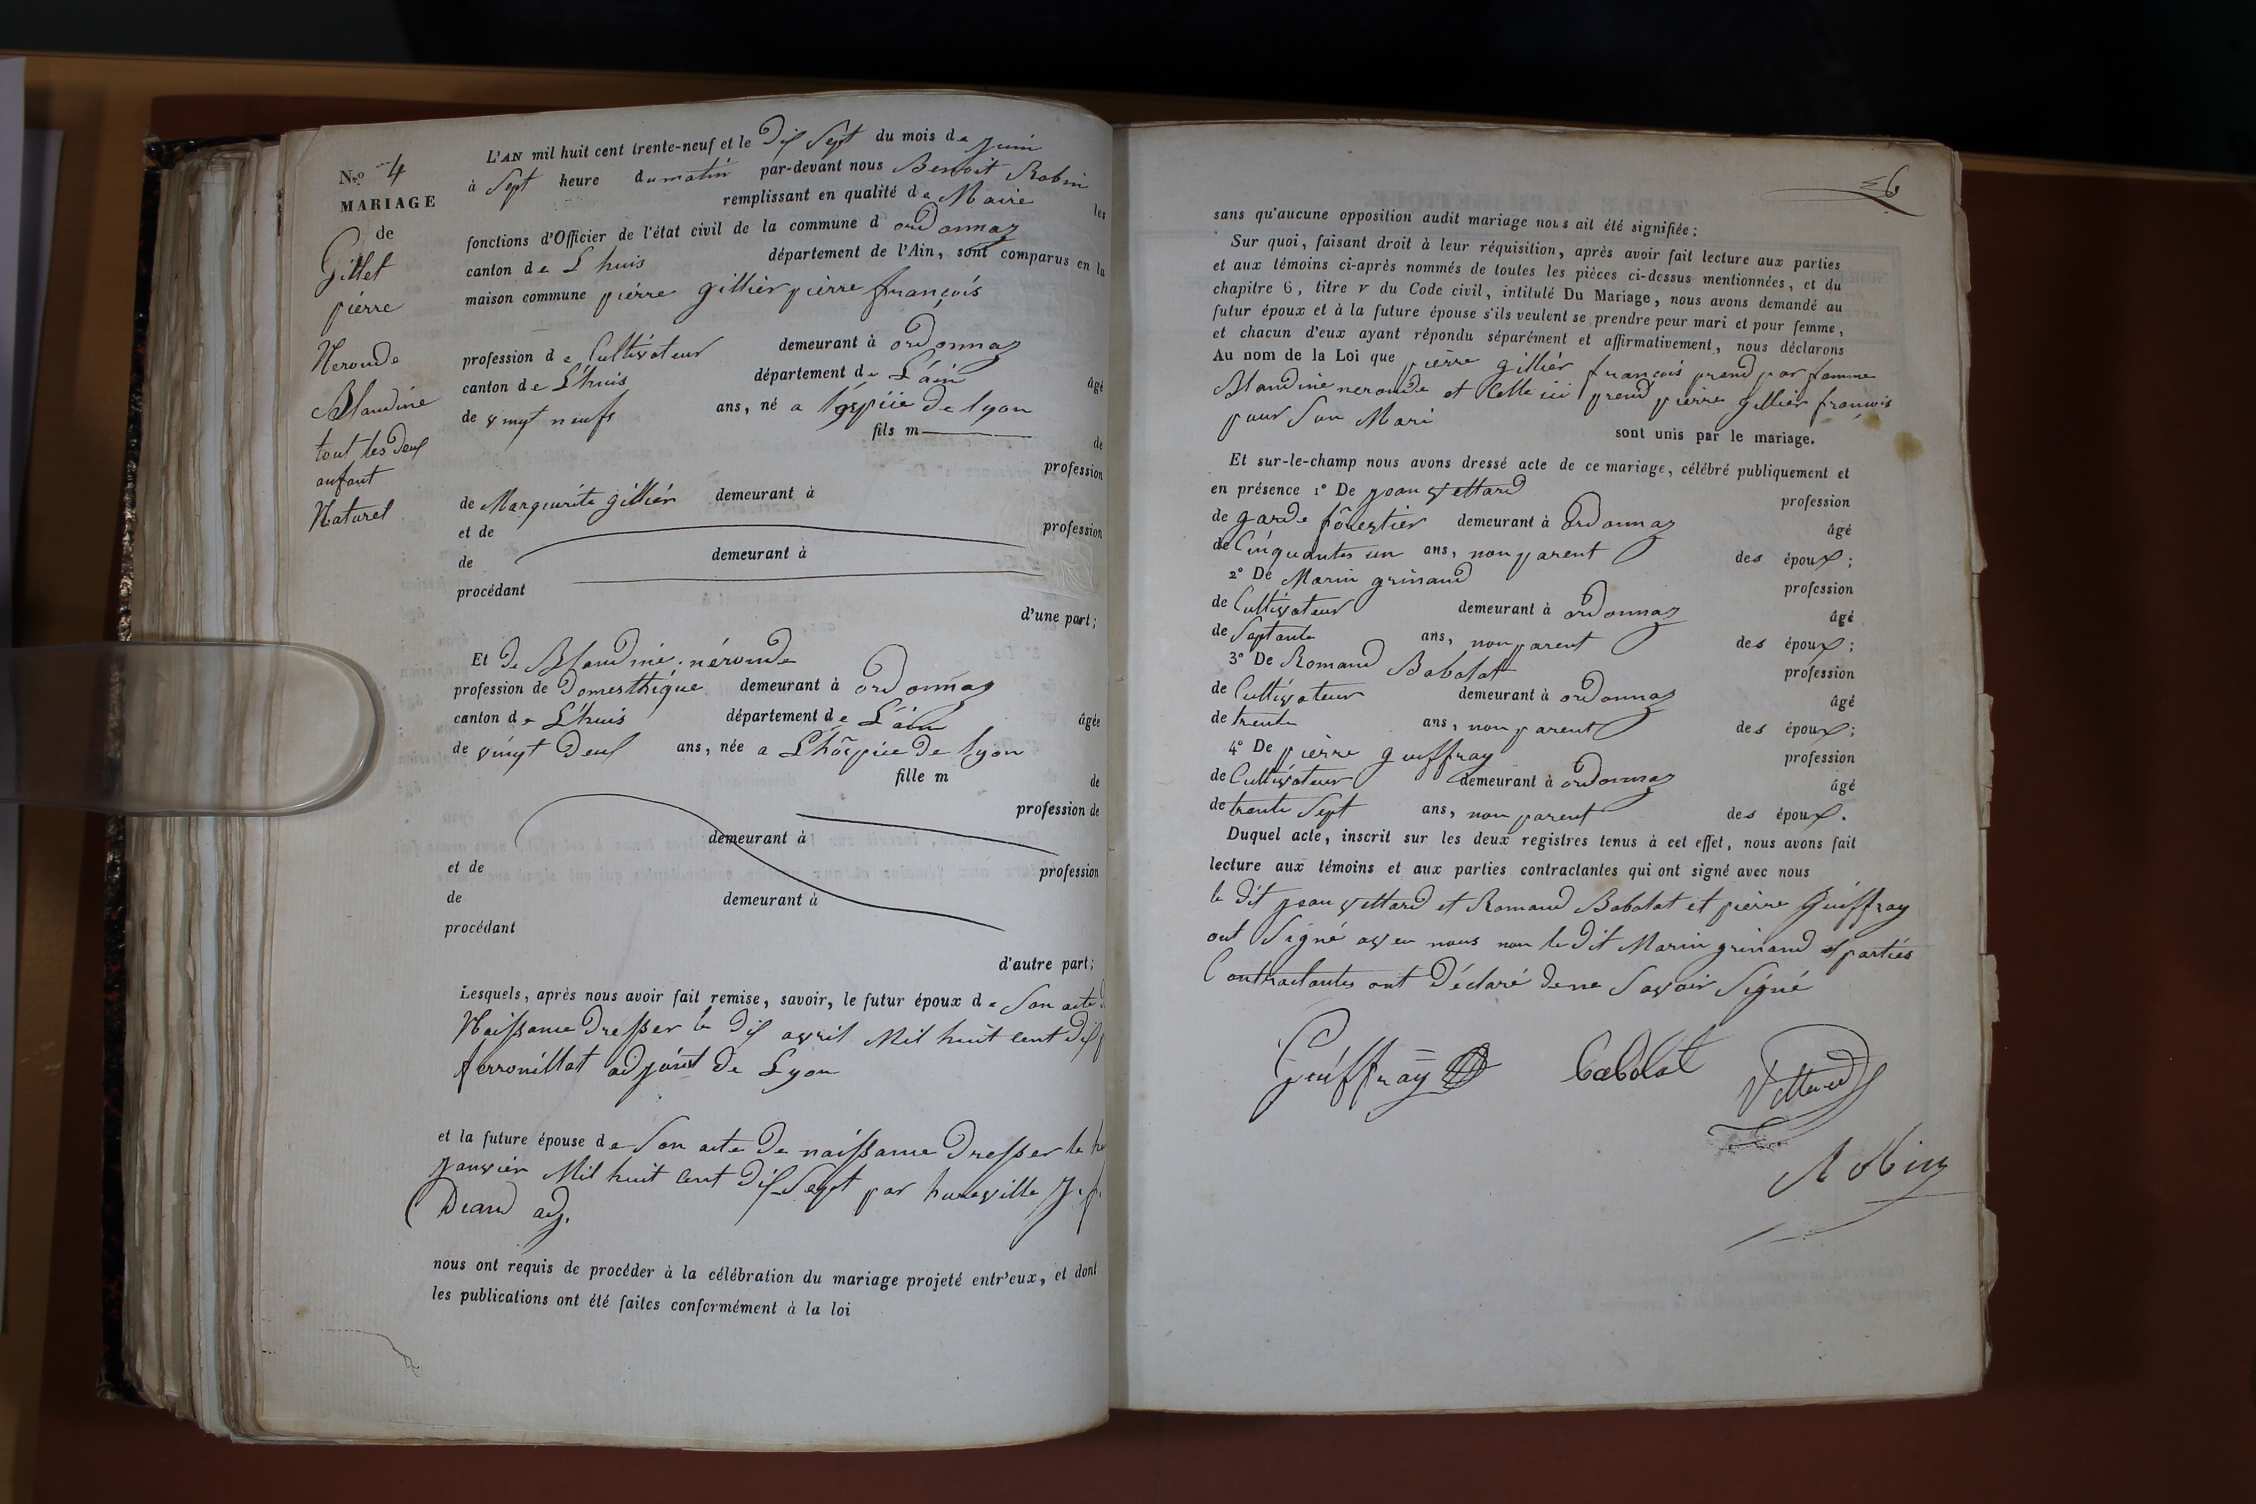 N.º 4
MARIAGE
de
Gillet
pierre
Neronde
Blandine
tout les deux
anfant
Naturel
L'AN mil huit cent trente-neuf et le dix Sept du mois de juin
à Sept heure du matin par-devant nous Benoit Robin
remplissant en qualité de Maire les
fonctions d'Officier de l'état civil de la commune d ordonnaz
canton de L huis département de l'Ain, sont comparus en la
maison commune pierre gillier pierre françois
profession de Cultivateur demeurant à ordonnaz
canton de L'huis département de L'ain âgé
de vingt neufs ans, né a l'hospice de lyon
fils m de
profession
de Marguerite gillier demeurant à
et de profession
de demeurant à
procédant
d'une part;
Et de Blandine neronde
profession de Domesthique demeurant à ordonnaz
canton de L'huis département de L'ain âgée
de vingt deux ans, née a L'hospice de lyon
fille m de
profession de
demeurant à
et de profession
de demeurant à
procédant
d'autre part;
Lesquels, après nous avoir fait remise, savoir, le futur époux de Son acte
Naissance dresser le dix avril Mil huit cent dix
ferrouillat adjoint de Lyon
et la future épouse de Son acte de naissance dresser le
janvier Mil huit cent dix Sept par
adj.
nous ont requis de procéder à la célébration du mariage projeté entr'eux, et dont
les publications ont été faites conformément à la loi
6
sans qu'aucune opposition audit mariage nous ait été signifiée;
Sur quoi, faisant droit à leur réquisition, après avoir fait lecture aux parties
et aux témoins ci-après nommés de toutes les pièces ci-dessus mentionnées, et du
chapitre 6, titre V du Code civil, intitulé Du Mariage, nous avons demandé au
futur époux et à la future épouse s'ils veulent se prendre pour mari et pour femme,
et chacun d'eux ayant répondu séparément et affirmativement, nous déclarons
Au nom de la Loi que pierre gillier françois prend par famme
Blandine neronde et Celle ici prend pierre gillier françois
pour Son Mari
sont unis par le mariage.
Et sur-le-champ nous avons dressé acte de ce mariage, célébré publiquement et
en présence 1º De jean vettard profession
de garde forestier demeurant à Ordonnaz âgé
de Cinquantes un ans, non parent des époux;
2º De Marin grinand profession
de Cultivateur demeurant à ordonnaz âgé
de Septante ans, non parent des époux;
3º De Romand Babolat profession
de Cultivateur demeurant à ordonnaz âgé
de trente ans, non parent des époux;
4º De pierre guiffray profession
de Cultivateur demeurant à ordonnaz âgé
de trente Sept ans, non parent des époux.
Duquel acte, inscrit sur les deux registres tenus à cet effet, nous avons fait
lecture aux témoins et aux parties contractantes qui ont signé avec nous
le dit jean vettard et Romand Babolat et pierre Guiffray
ont Signé avec nous non le dit Marin grinand et parties
Contractantes ont Déclaré de ne Savoir Signé
Guiffray babolat Vettard
Robin